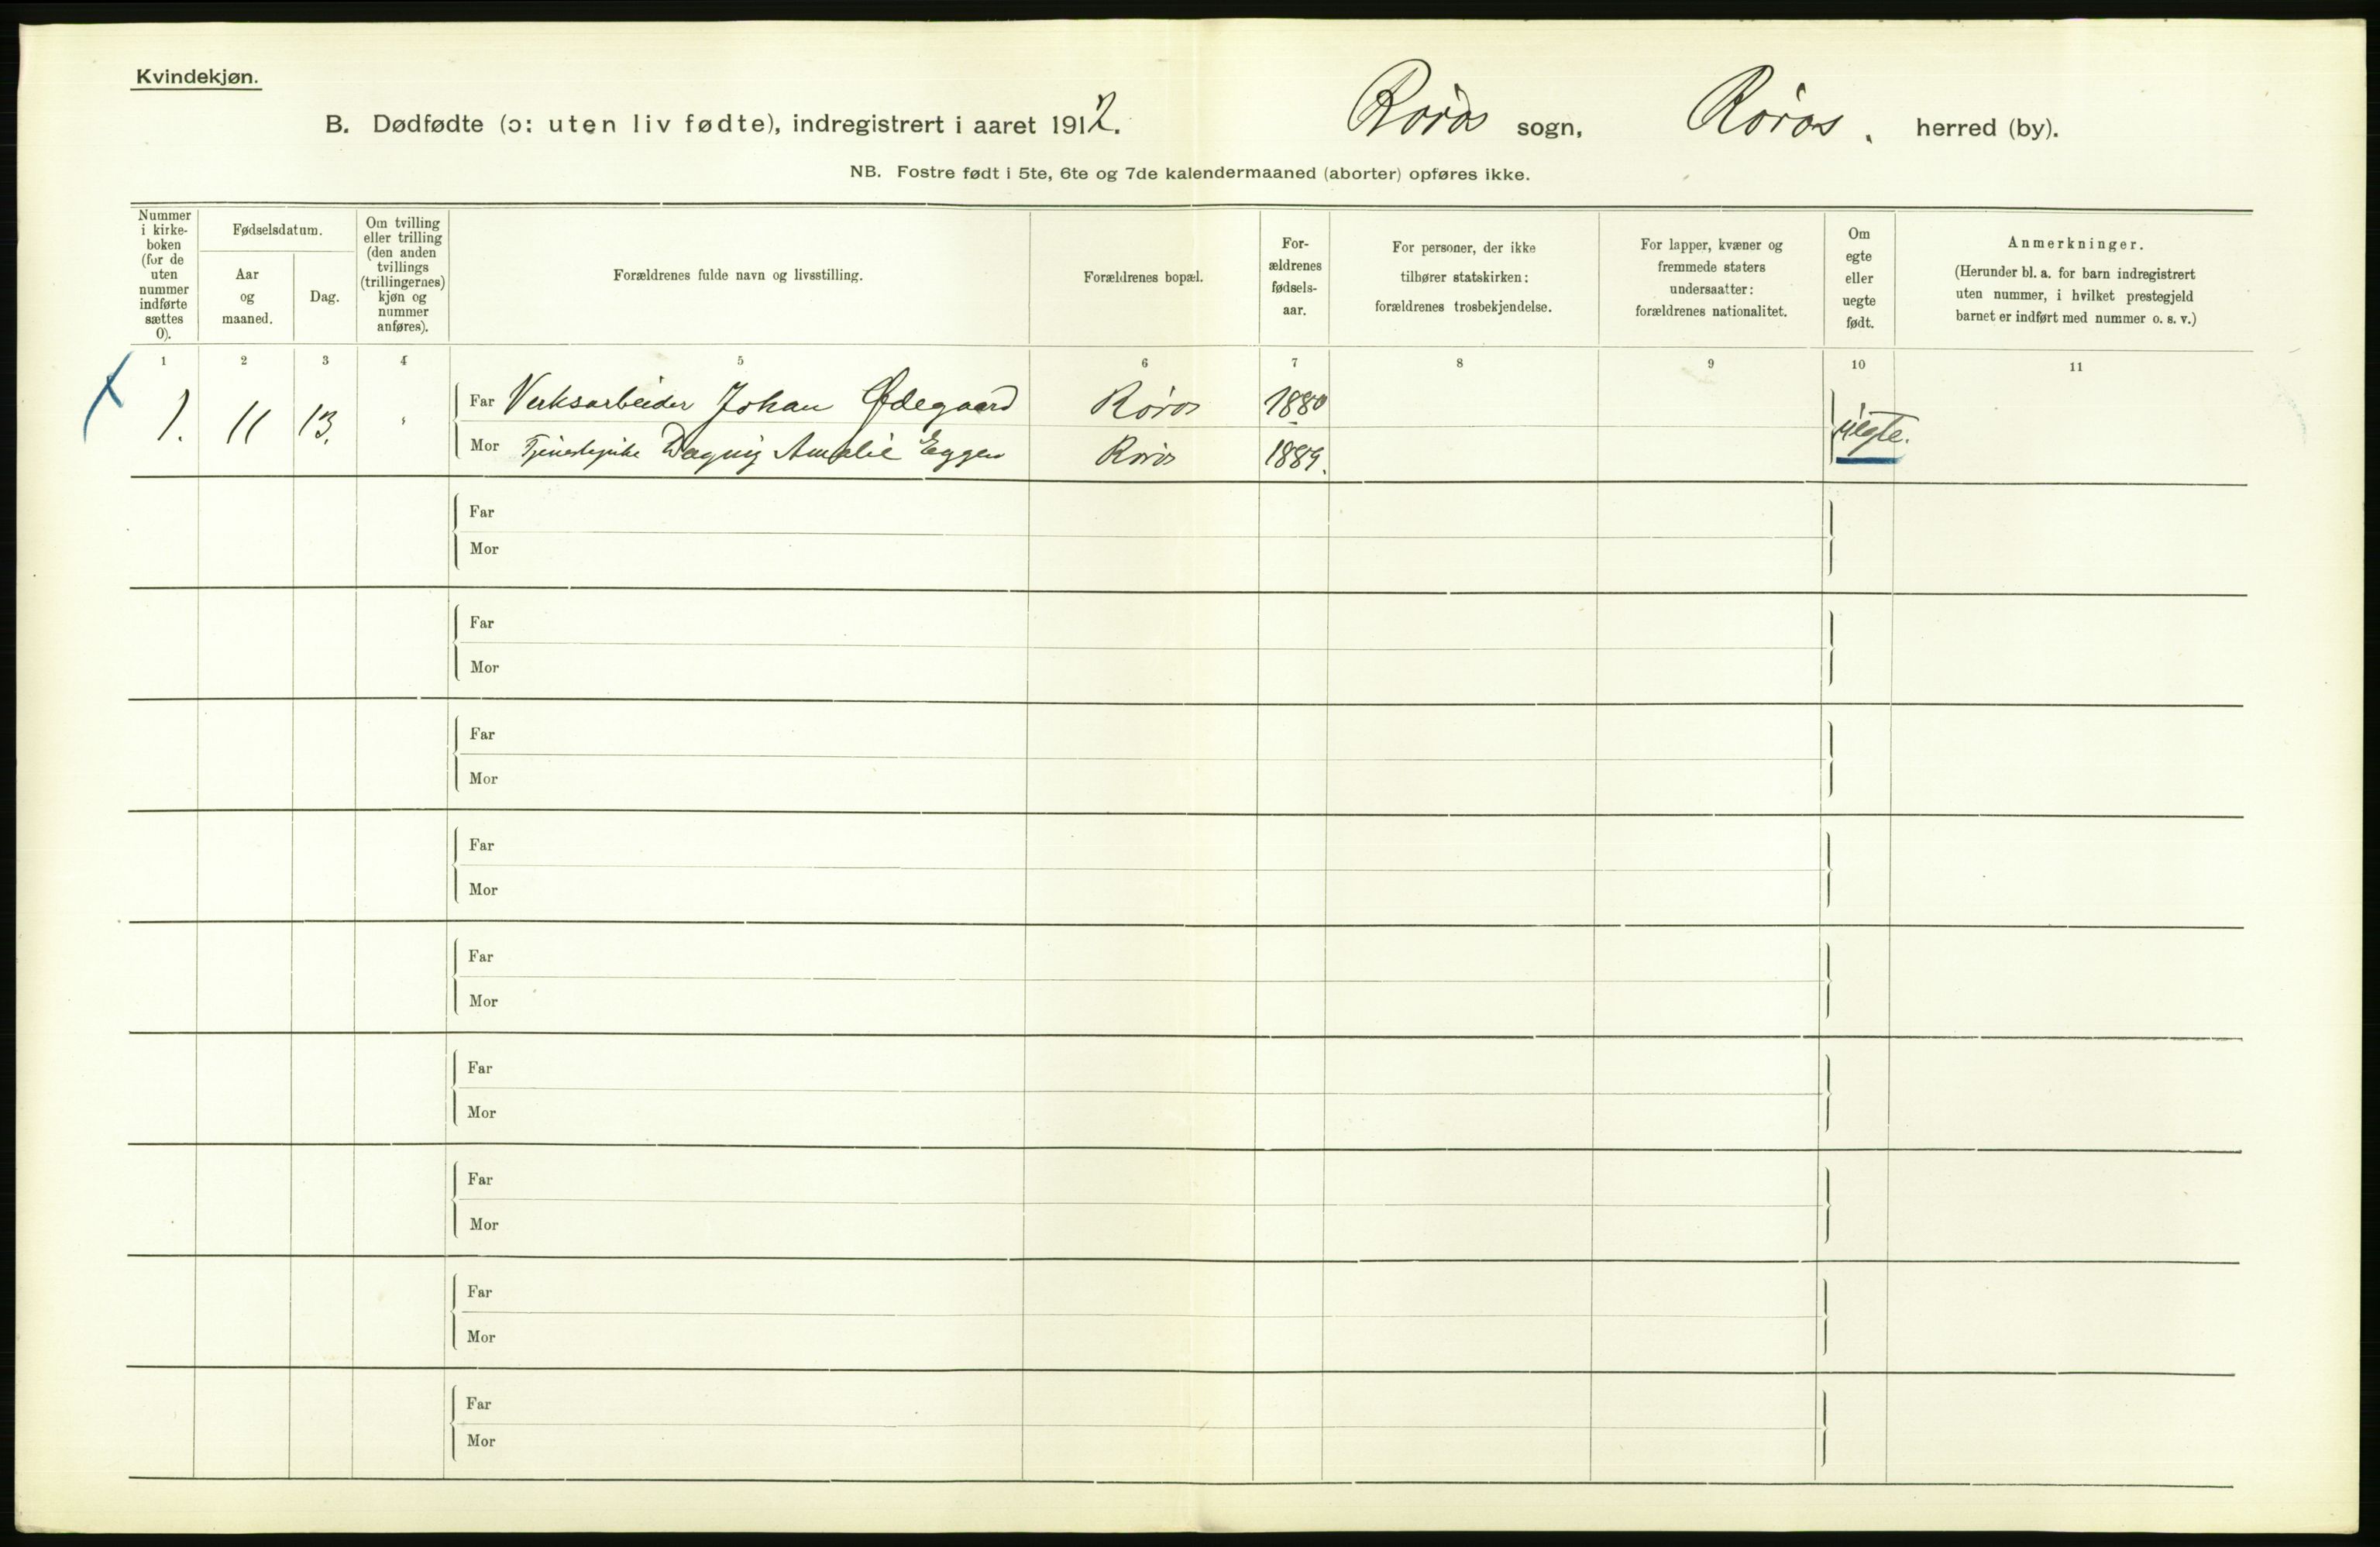 Kvindekjøn.
B. Dødfødte (ɔ: uten liv fødte), indregistrert i aaret 1912. Røros sogn, Røros. herred (by).
NB. Fostre født i 5te, 6te og 7de kalendermaaned (aborter) opføres ikke.
Nummer i kirke-boken (for de uten nummer indførte sættes 0).
Fødselsdatum.
Aar og maaned.
Dag.
Om tvilling eller trilling (den anden tvillings (trillingernes) kjøn og nummer anføres).
Forældrenes fulde navn og livsstilling.
Forældrenes bopæl.
For-ældrenes fødsels-aar.
For personer, der ikke tilhører statskirken: forældrenes trosbekjendelse.
For lapper, kvæner og fremmede staters undersaatter: forældrenes nationalitet.
Om egte eller uegte født.
Anmerkninger.
(Herunder bl. a. for barn indregistrert uten nummer, i hvilket prestegjeld barnet er indført med nummer o. s. v.)
1 2 3 4 5 6 7 8 9 10 11
1. 11 13. Far Verksarbeider Johan Ødegaard Røros 1880 uegte.
Mor Dagny Amalie Eggen Røros 1889.
Far
Mor
Far
Mor
Far
Mor
Far
Mor
Far
Mor
Far
Mor
Far
Mor
Far
Mor
Far
Mor